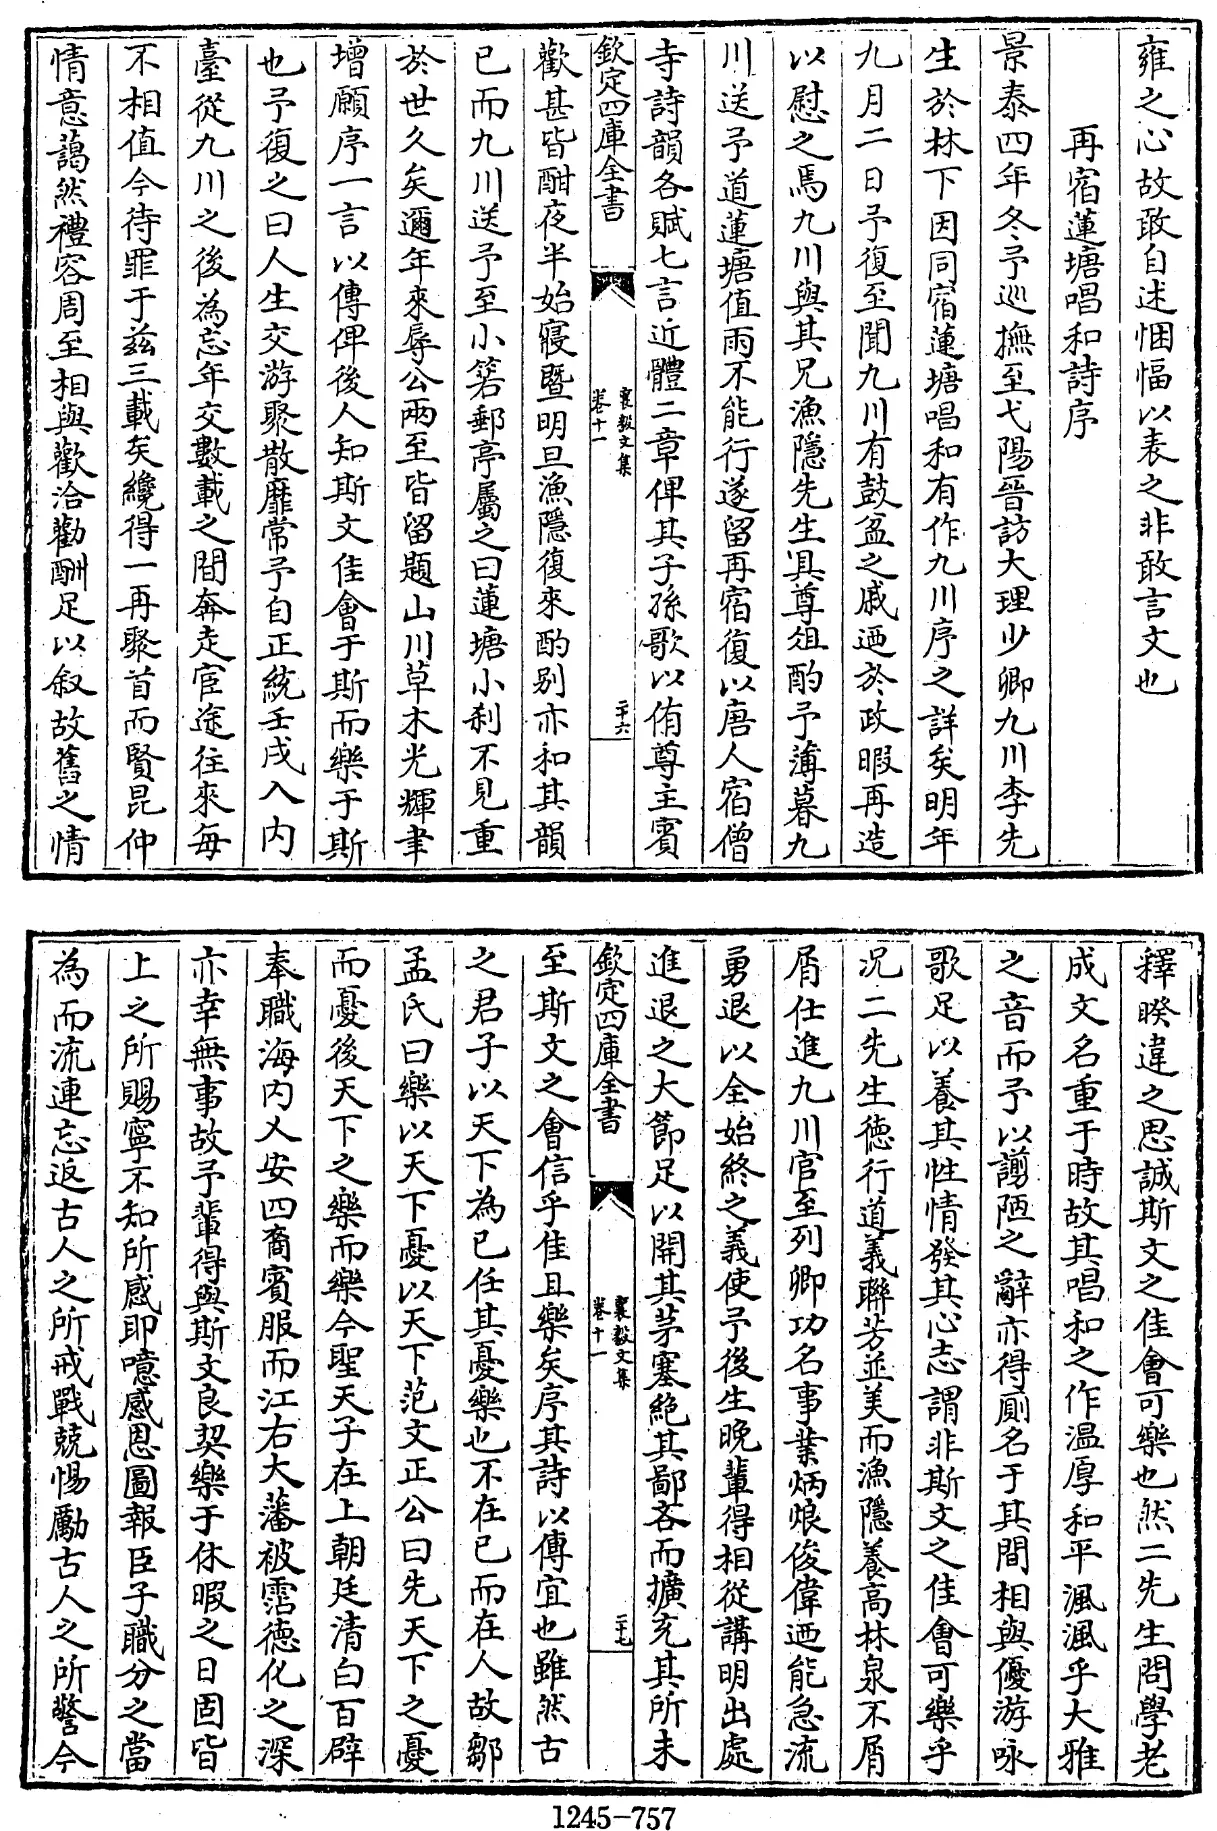 雍之心故敢自述悃愊以表之非敢言文也
再宿蓮塘唱和詩序
景泰四年冬予巡撫至弋陽晉訪大理少卿九川李先
生於林下因同宿蓮塘唱和有作九川序之詳矣明年
九月二日予復至聞九川有鼓盆之戚迺於政暇再造
以慰之焉九川與其兄漁隱先生具尊俎酌予薄暮九
川送予道蓮塘值雨不能行遂留再宿復以唐人宿僧
寺詩韻各賦七言近體二章俾其子孫歌以侑尊主賓
欽定四庫全書
襄毅文集
卷十一
二十六
歡甚皆酣夜半始寢暨明旦漁隱復來酌别亦和其韻
已而九川送予至小箬郵亭屬之曰蓮塘小刹不見重
於世久矣邇年來辱公兩至皆留題山川草木光輝聿
增願序一言以傳俾後人知斯文佳會于斯而樂于斯
也予復之曰人生交游聚散靡常予自正統壬戌入内
臺從九川之後為忘年交數載之間奔走宦途往來每
不相值今待罪于兹三載矣纔得一再聚首而賢昆仲
情意藹然禮容周至相與歡洽勸酬足以叙故舊之情
釋睽違之思誠斯文之佳會可樂也然二先生問學老
成文名重于時故其唱和之作温厚和平渢渢乎大雅
之音而予以謭陋之辭亦得厠名于其間相與優游咏
歌足以養其性情發其心志謂非斯文之佳會可樂乎
况二先生徳行道義聯芳並美而漁隱養高林泉不屑
屑仕進九川官至列卿功名事業炳烺俊偉迺能急流
勇退以全始終之義使予後生晚輩得相從講明出處
進退之大節足以開其茅塞絶其鄙吝而擴充其所未
欽定四庫全書
襄毅文集
卷十一
二十七
至斯文之會信乎佳且樂矣序其詩以傳宜也雖然古
之君子以天下為已任其憂樂也不在已而在人故鄒
孟氏曰樂以天下憂以天下范文正公曰先天下之憂
而憂後天下之樂而樂今聖天子在上朝廷清白百辟
奉職海内乂安四裔賓服而江右大藩被霑徳化之深
亦幸無事故予輩得與斯文良契樂于休暇之日固皆
上之所賜寜不知所感即噫感恩圖報臣子職分之當
為而流連忘返古人之所戒戰兢惕勵古人之所警今
1245-757